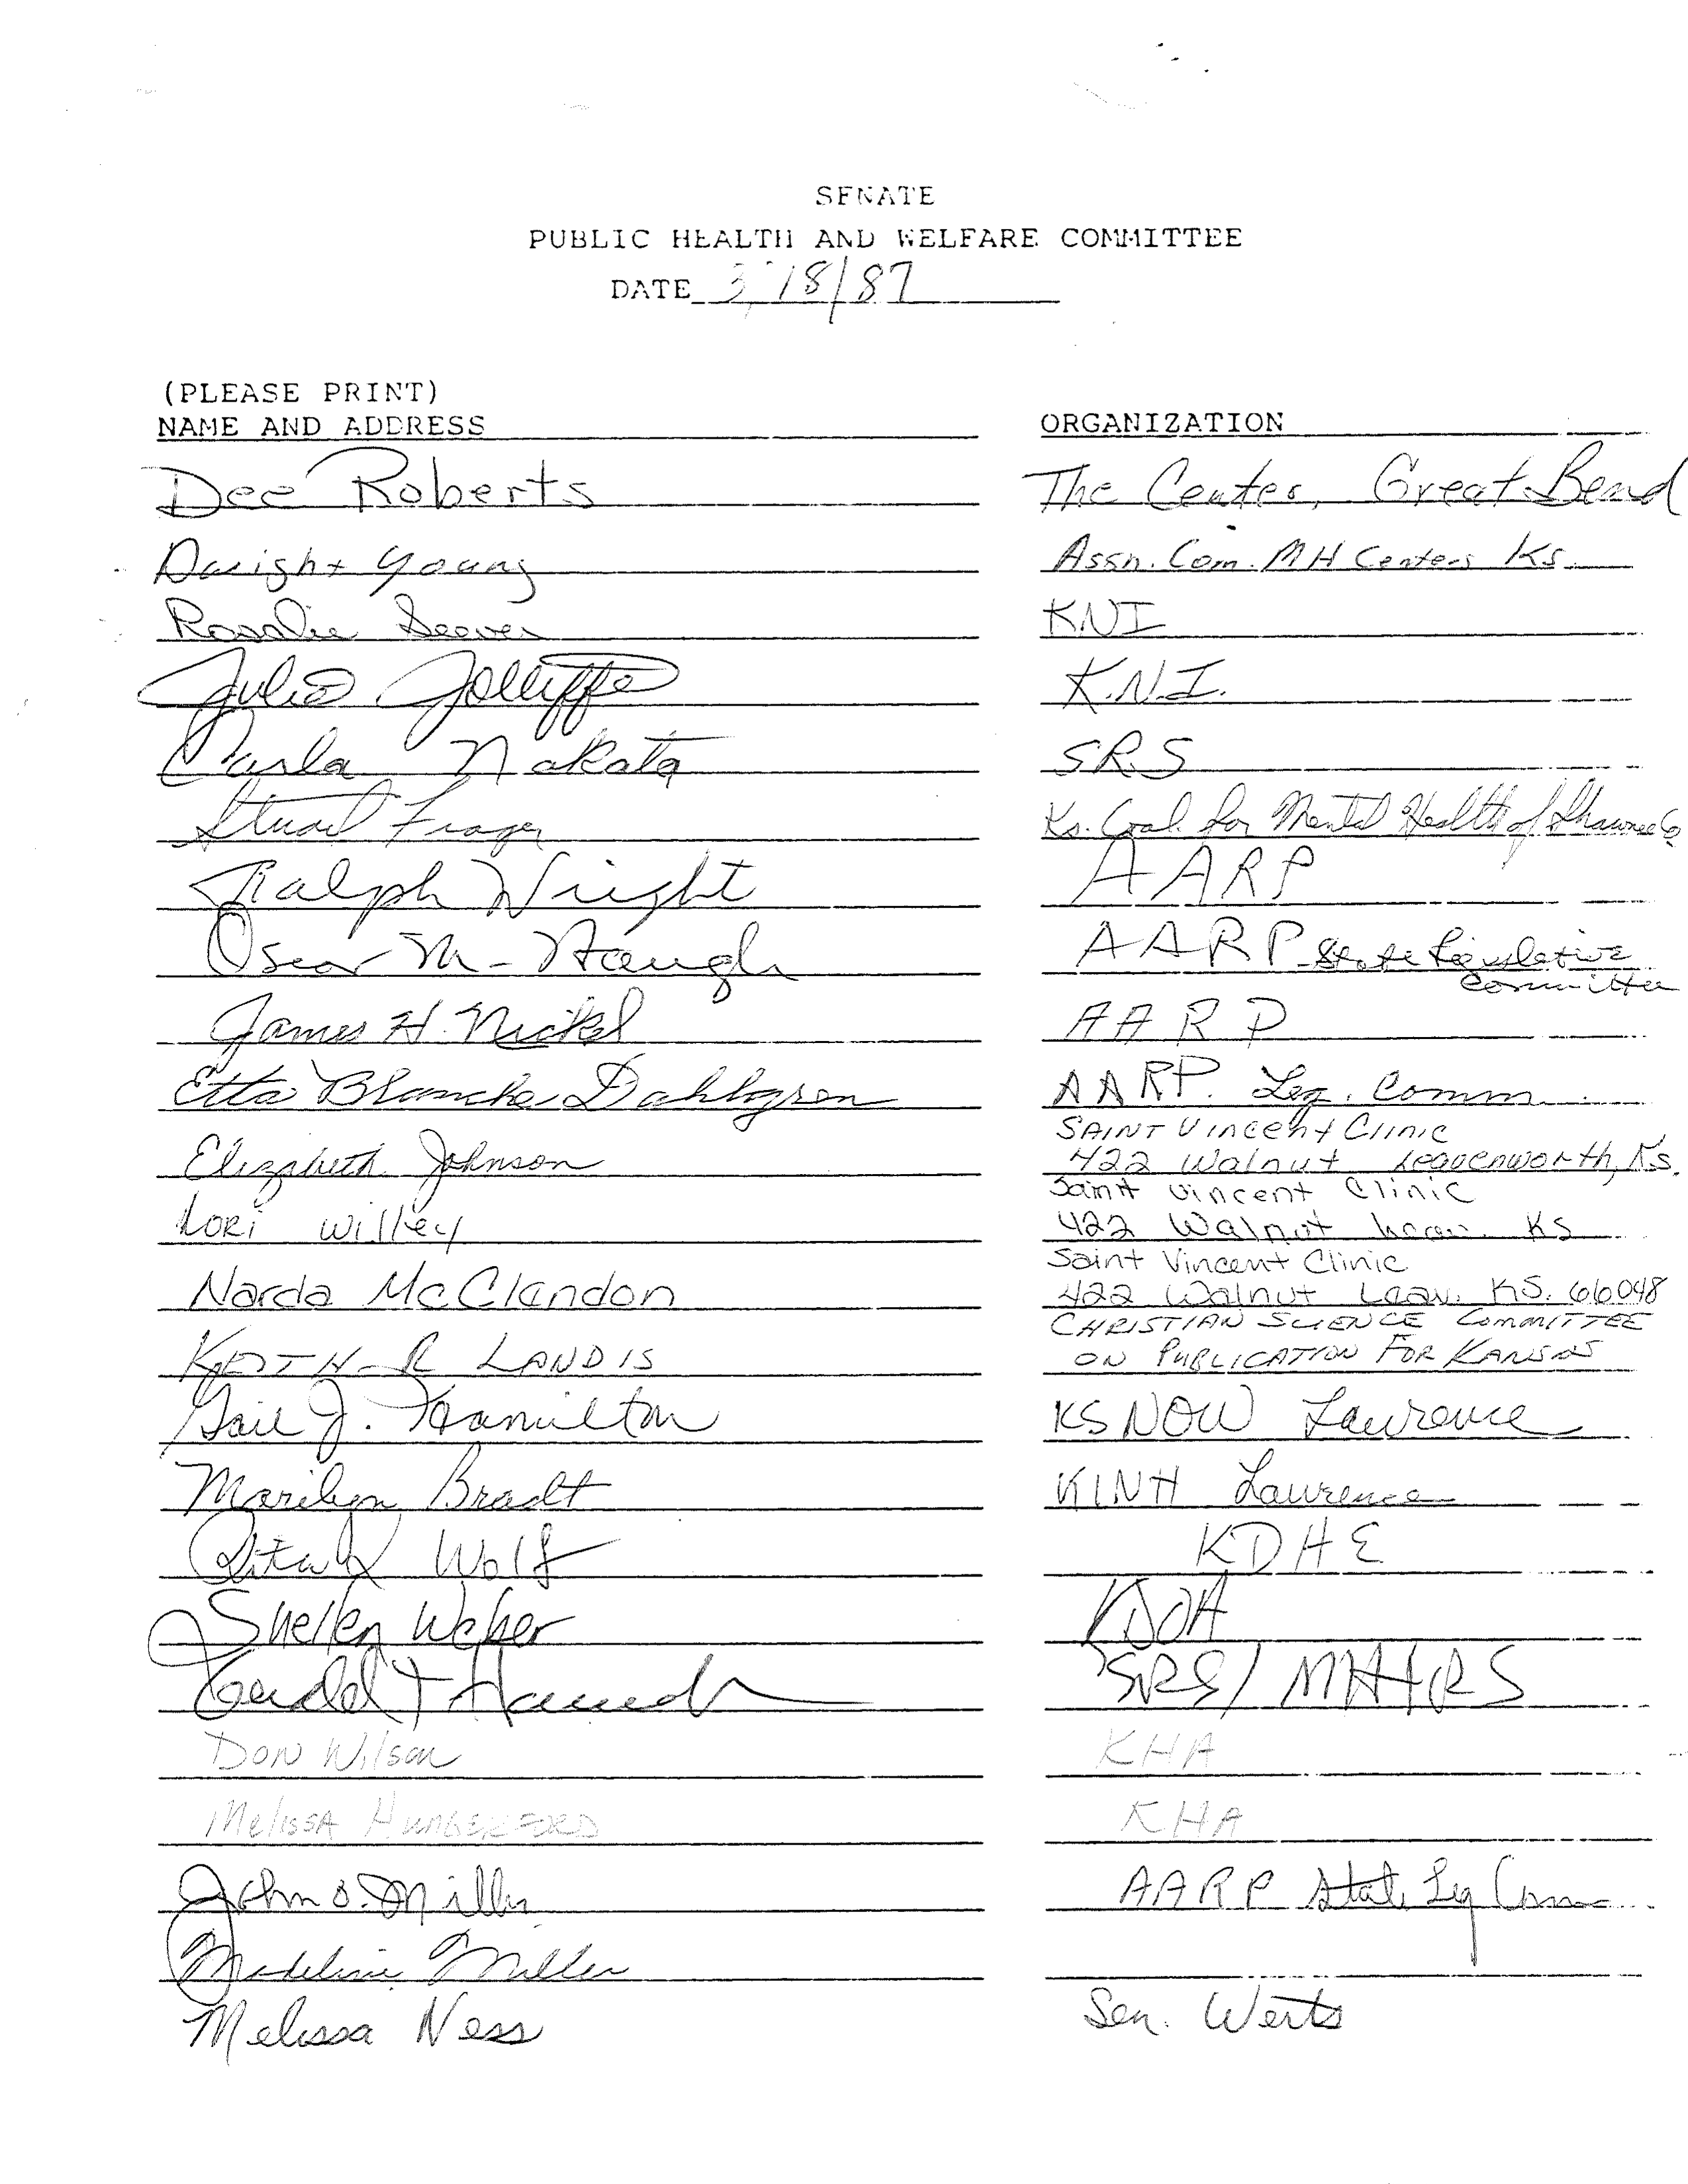 SENATE
PUBLIC HEALTH AND WELFARE COMMITTEE
DATE 3/18/87
(PLEASE PRINT)
NAME AND ADDRESS ORGANIZATION
Dee Roberts The Center, Great Bend
Dwight Young Assn. Com. MH Centers Ks
Rosalie Seever KNI
Julia Jolliffe K.N.I.
Carla Nakata SRS
Stuart Frager Ks. Coal. for Mental Health of Shawnee Co
Ralph Wright AARP
Oscar M. Haugh AARP State Legislative
Committee
James H. Nickel AARP
Etta Blanche Dahlgren AARP. Leg. Comm.
SAINT Vincent Clinic
Elizabeth Johnson 422 Walnut Leavenworth, Ks.
Saint Vincent Clinic
Lori Willey 422 Walnut Leav. KS
Saint Vincent Clinic
Narda McClendon 422 Walnut Leav. KS. 66048
CHRISTIAN SCIENCE COMMITTEE
KEITH R LANDIS ON PUBLICATION FOR KANSAS
Gail J. Hamilton KS NOW Lawrence
Marilyn Bradt KINH Lawrence
Rita Wolf KDHE
Shelley Weber KDOA
Gerald T Hannah SRS/MH+RS
Don Wilson KHA
Melissa HUNGERFORD KHA
John O. Miller AARP State Leg Com
Madeline Miller
Melissa Ness Sen. Werts